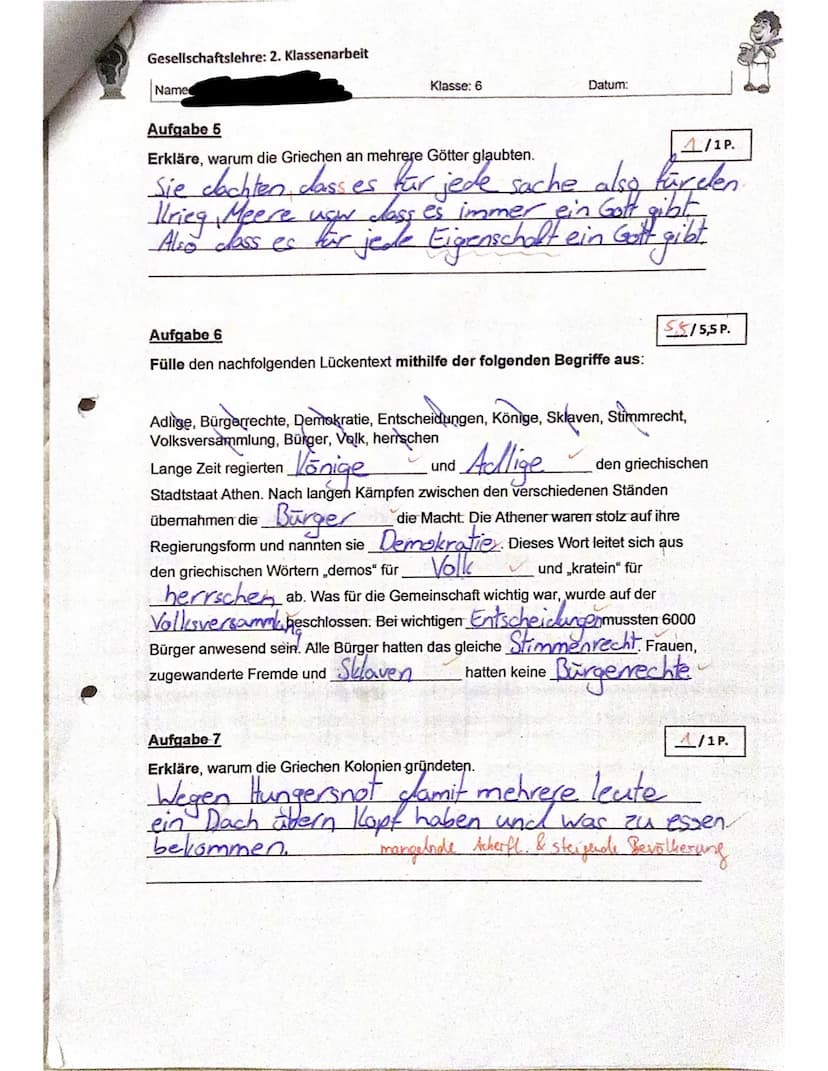 Gesellschaftslehre: 2. Klassenarbeit
Name Klasse: 6 Datum:
Aufgabe 5
1/1P.
Erkläre, warum die Griechen an mehrere Götter glaubten.
Sie dachten, dass es für jede sache also für den
Krieg, Meere usw dass es immer ein Gott gibt
Also dass es für jede Eigenschaft ein Gott gibt
Aufgabe 6
5,5/5,5 P.
Fülle den nachfolgenden Lückentext mithilfe der folgenden Begriffe aus:
Adlige, Bürgerrechte, Demokratie, Entscheidungen, Könige, Sklaven, Stimmrecht,
Volksversammlung, Bürger, Volk, herrschen
Lange Zeit regierten Könige und Adlige den griechischen
Stadtstaat Athen. Nach langen Kämpfen zwischen den verschiedenen Ständen
übernahmen die Bürger die Macht. Die Athener waren stolz auf ihre
Regierungsform und nannten sie Demokratie. Dieses Wort leitet sich aus
den griechischen Wörtern „demos“ für Volk und „kratein“ für
herrschen ab. Was für die Gemeinschaft wichtig war, wurde auf der
Volksversammlung beschlossen. Bei wichtigen Entscheidungen mussten 6000
Bürger anwesend sein. Alle Bürger hatten das gleiche Stimmenrecht. Frauen,
zugewanderte Fremde und Sklaven hatten keine Bürgerrechte
Aufgabe 7
1/1P.
Erkläre, warum die Griechen Kolonien gründeten.
Wegen Hungersnot damit mehrere leute
ein Dach übern Kopf haben und was zu essen
bekommen. mangelnde Ackerfl. & steigende Bevölkerung